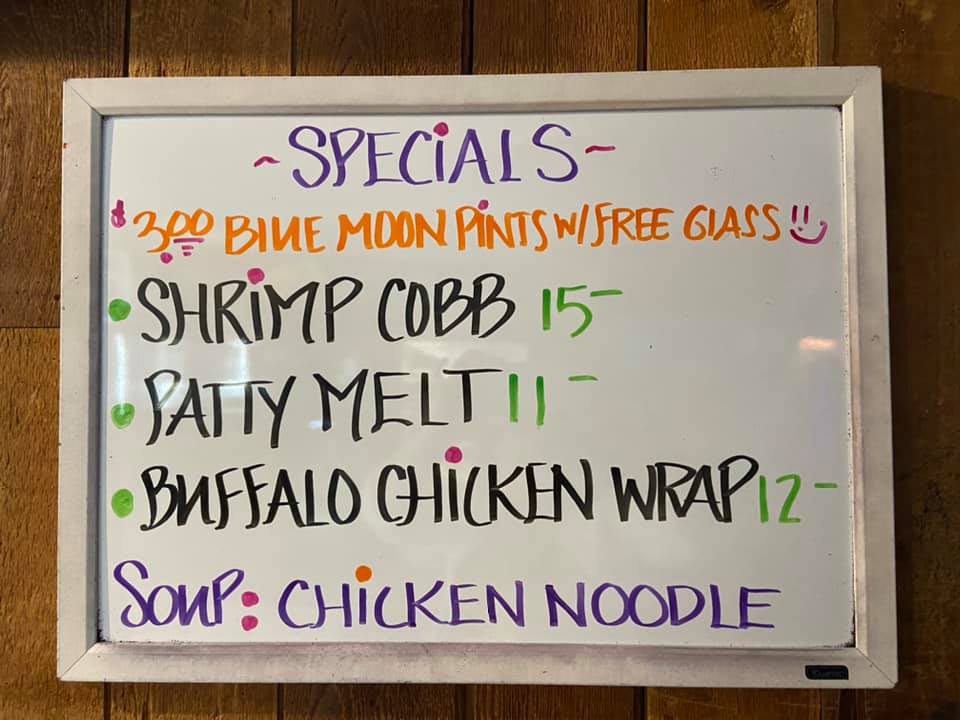 ~SPECiALS~
$3.00 BLUE MOON PiNTS W/FREE GLASS
• SHRiMP COBB 15-
• PATTY MELT 11-
• BUFFALO CHiCKEN WRAP 12-
SOUP: CHiCKEN NOODLE